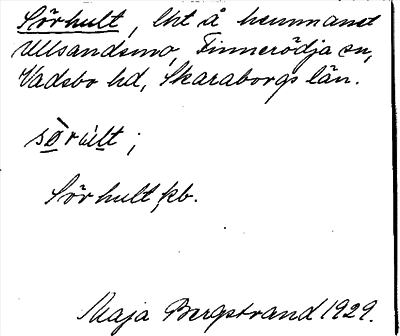 Sörhult, lht å hemmanet
Ullsandsmo, Finnerödja sn,
Vadsbo hd, Skaraborgs län.
Sörhult, kb.
Maja Bergstrand 1929.